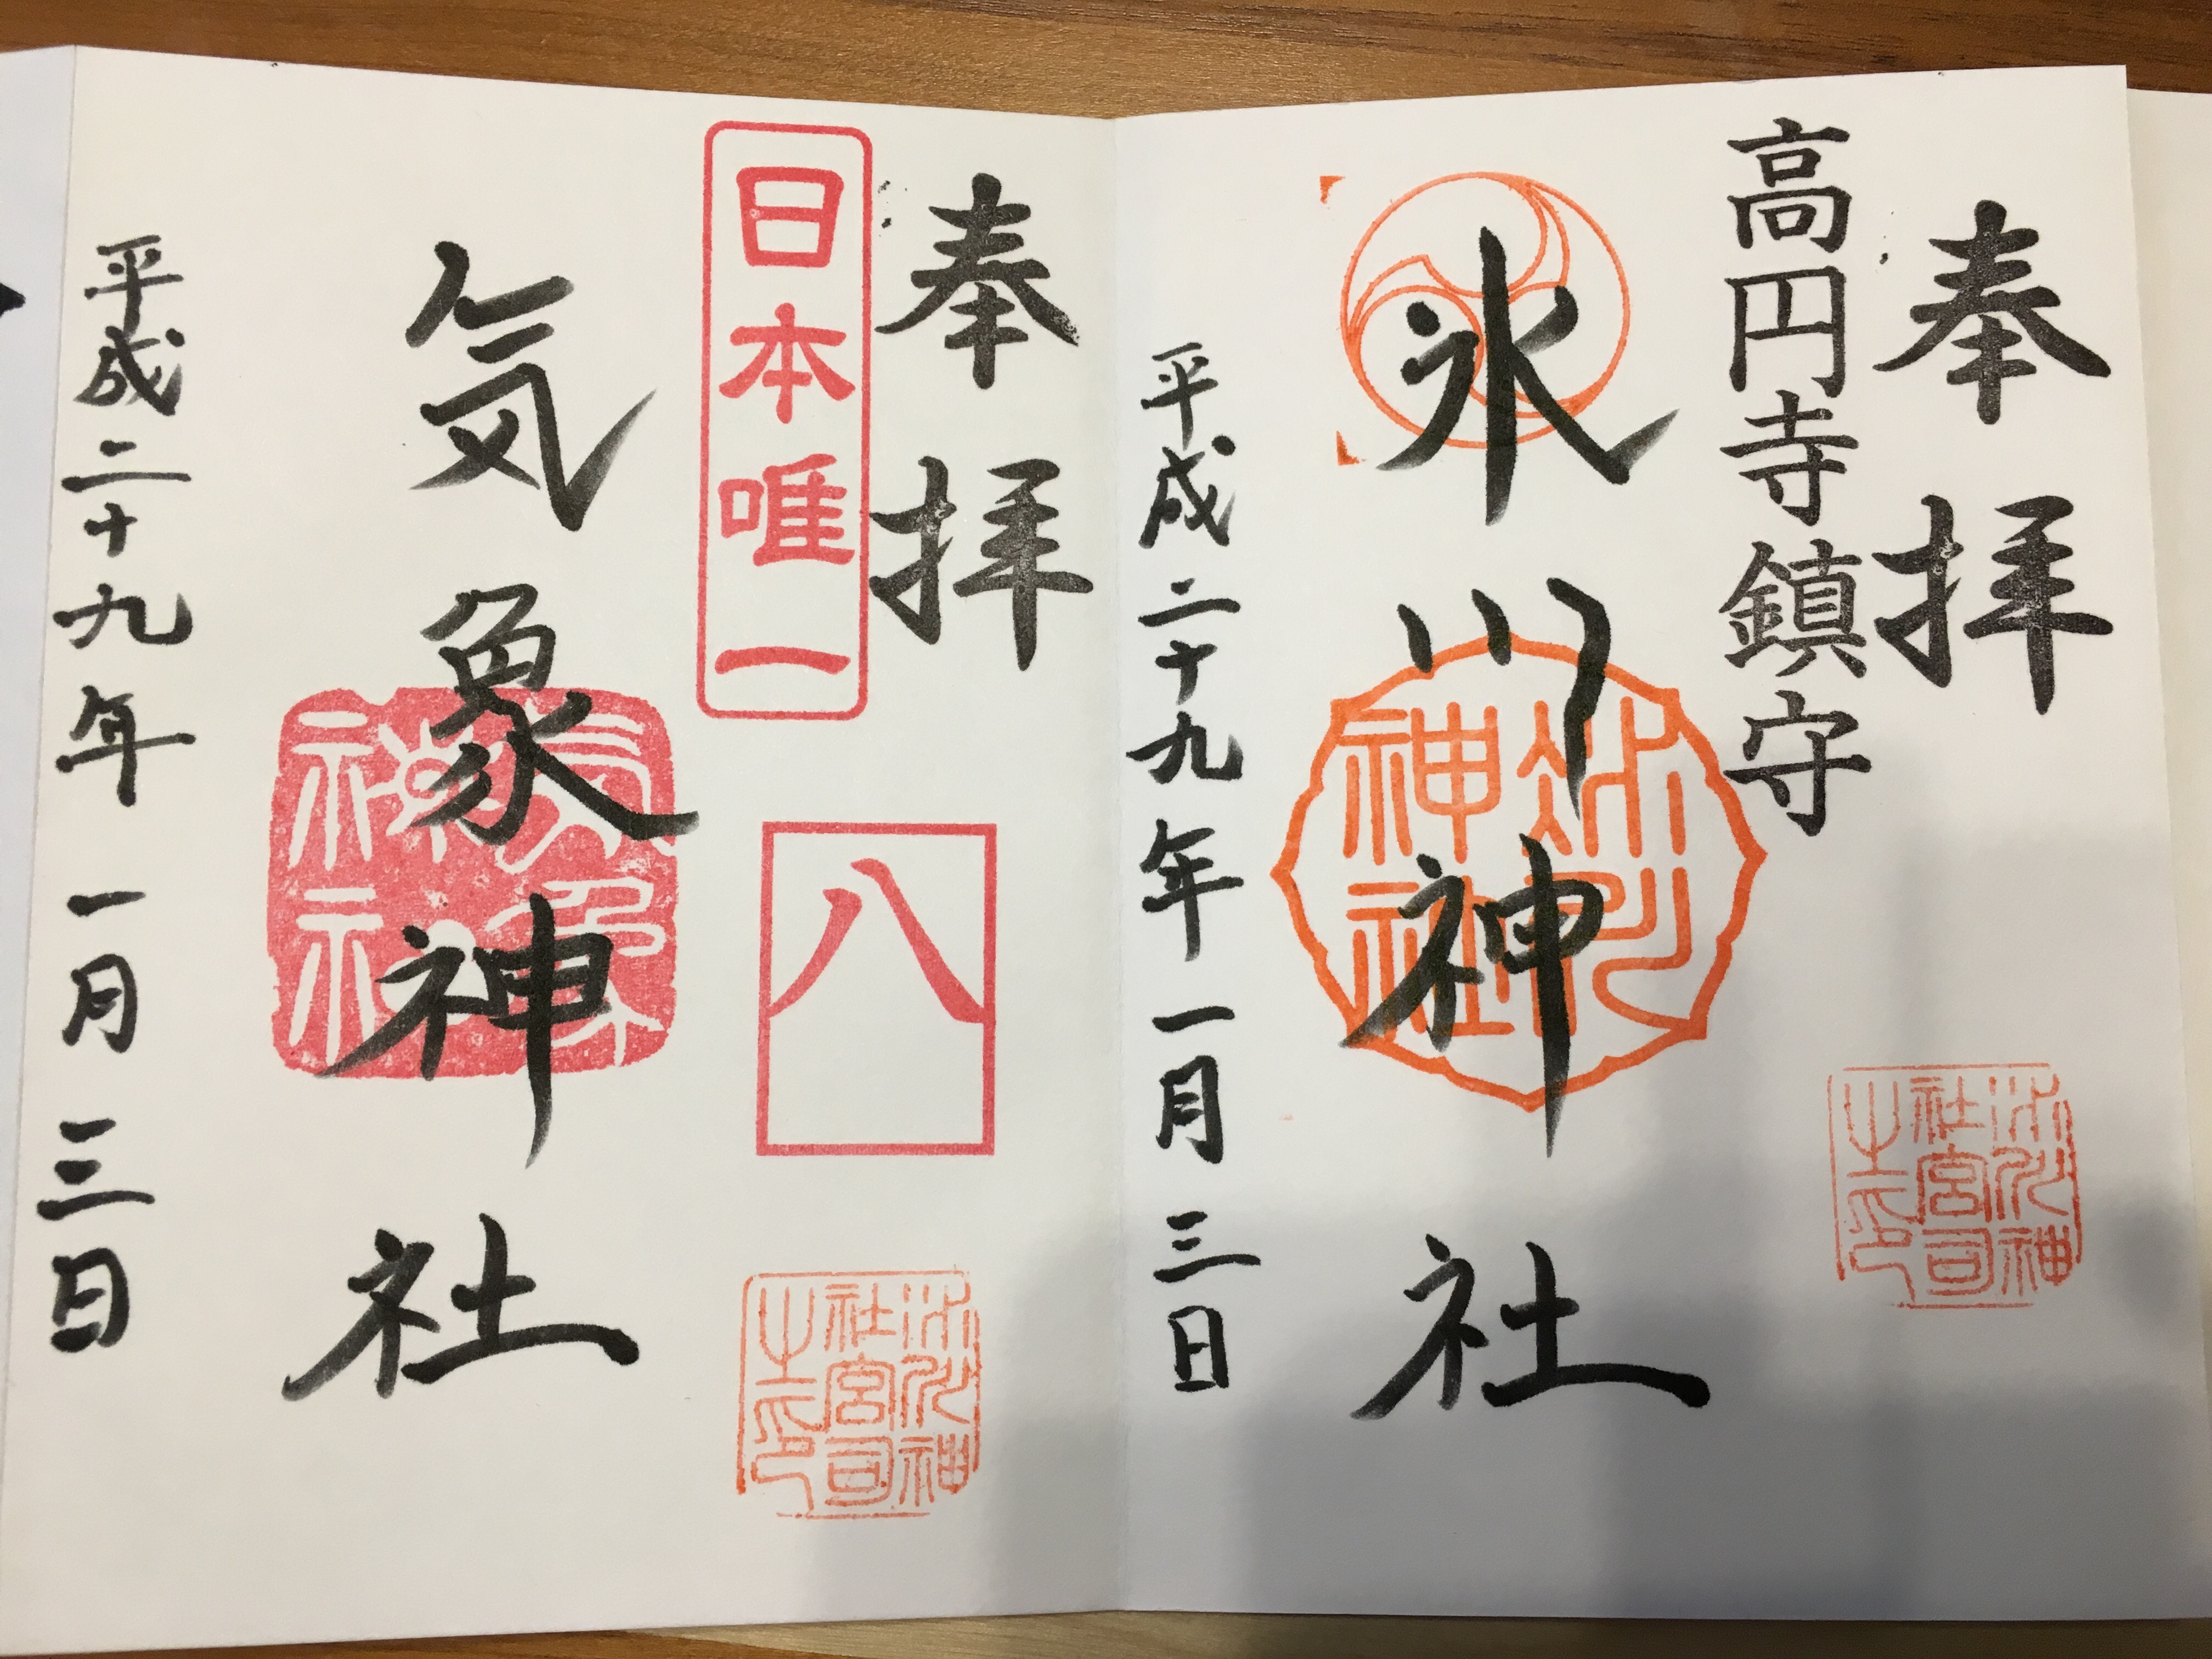 奉拝
高円寺鎮守
氷川神社
氷川神社
氷川神
社宮司
之印
平成二十九年一月三日
奉拝
日本唯一
八
気象神社
気象神社
氷川神
社宮司
之印
平成二十九年一月三日